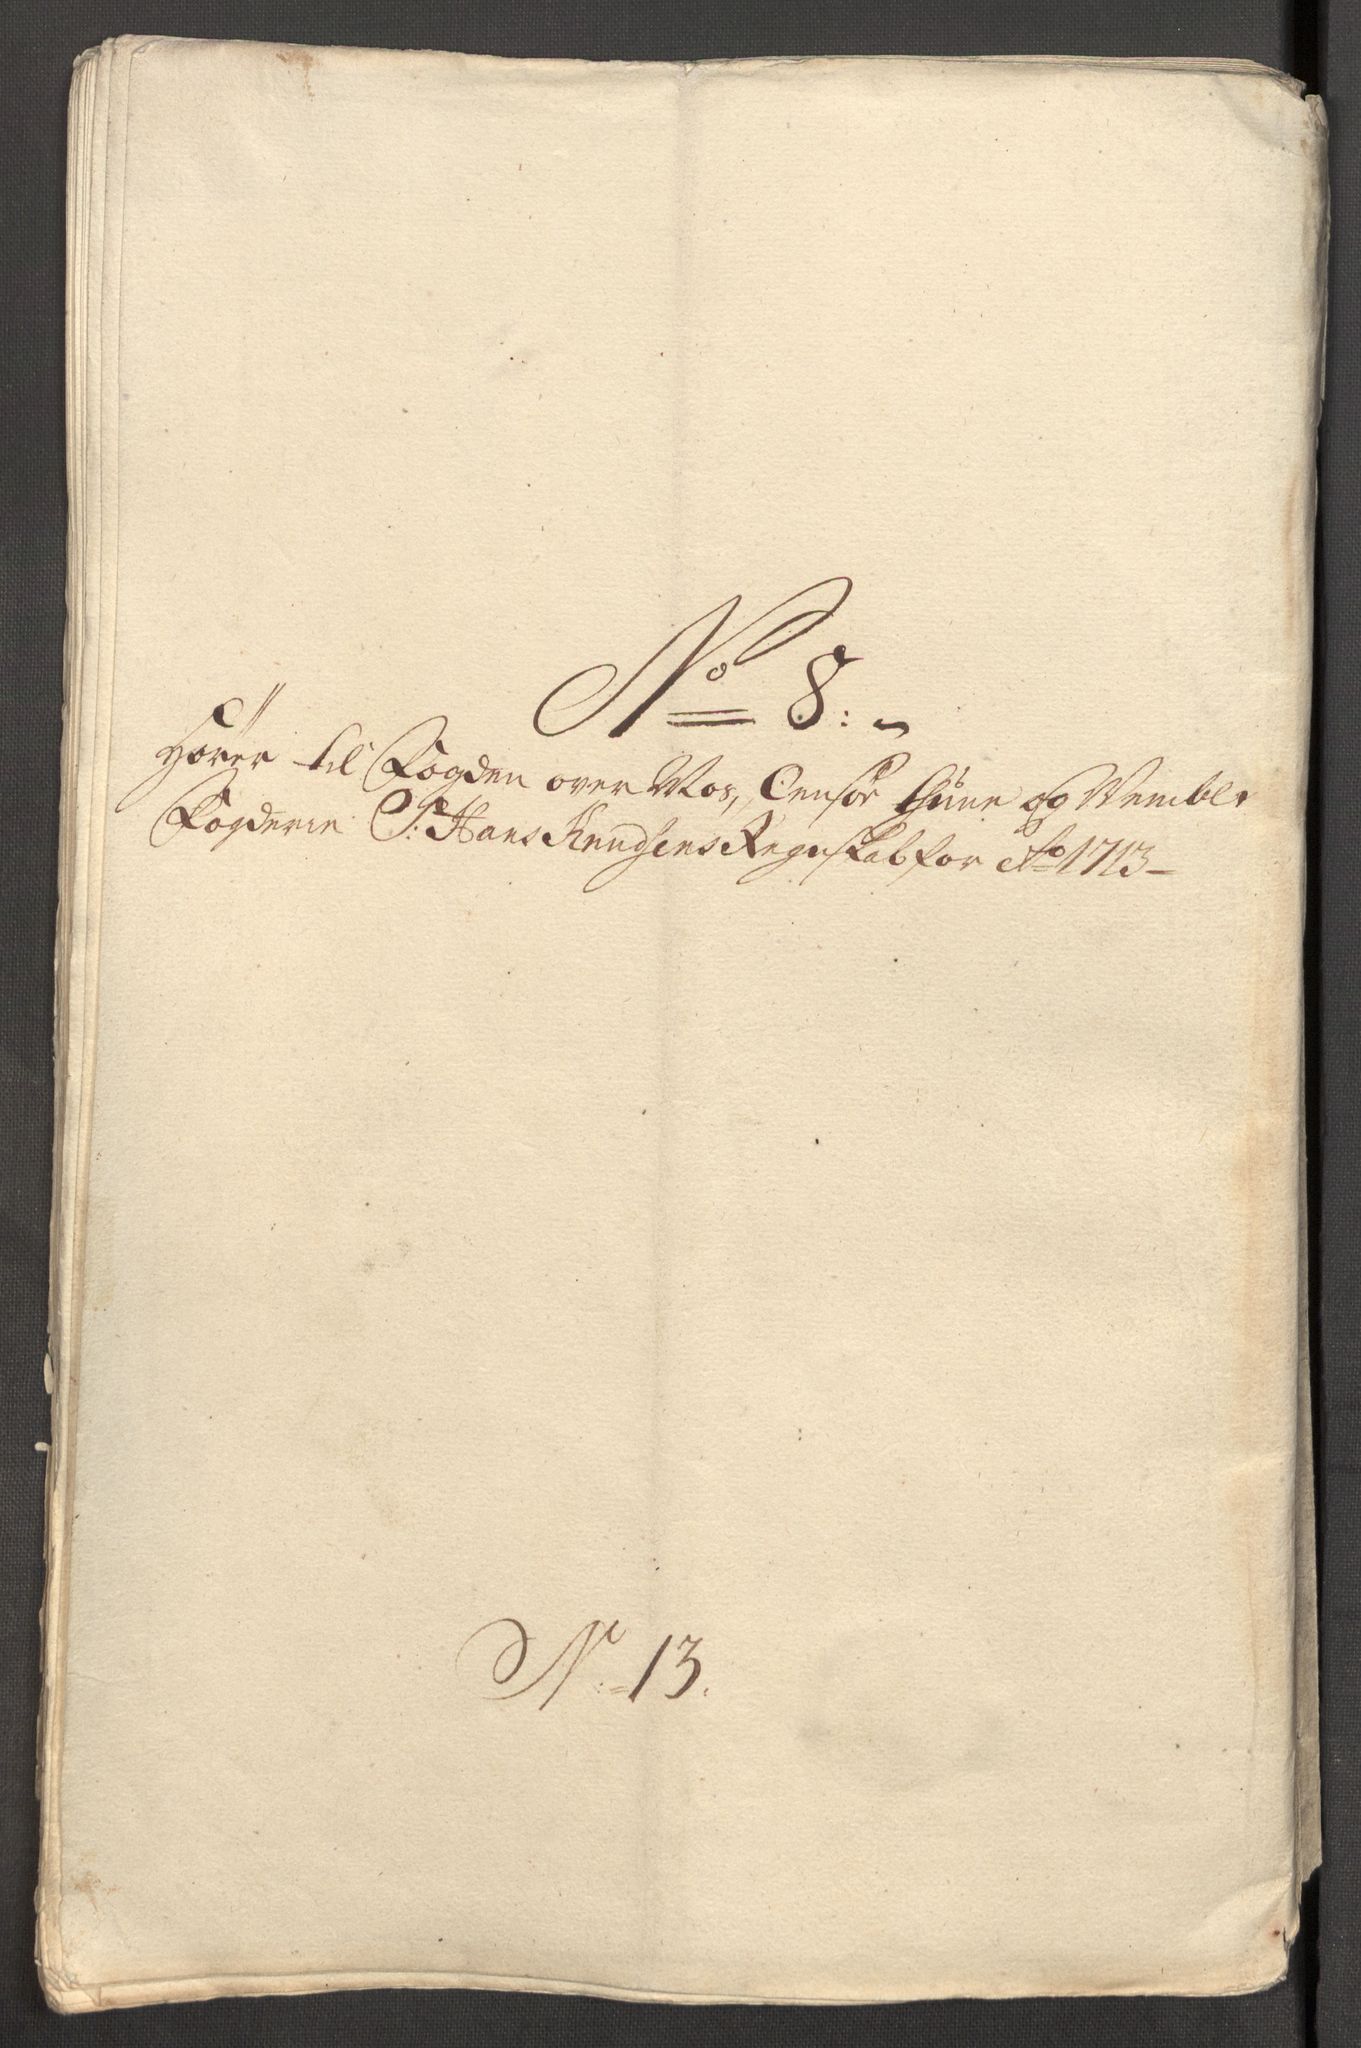 No 8:
Hører til Fogden over Mos, Onsøe Thune og Wemble
Fogderie S: Hans Knudsens Regnskab for Ao 1713
No 13.